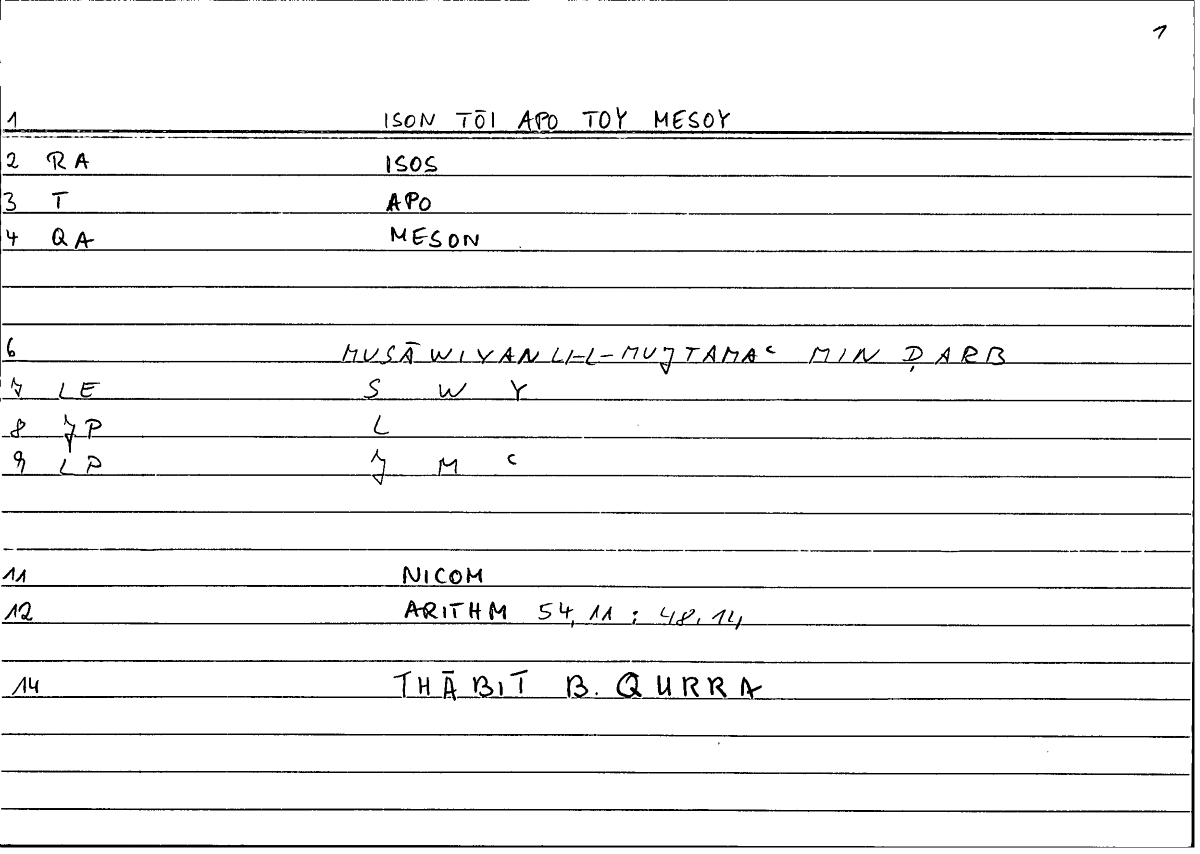 1
1 ISON TŌI APO TOY MESOY
2 RA ISOS
3 T APO
4 QA MESON
6 MUSĀWIYAN LI-L-MUJTAMAʿ MIN ḌARB
7 LE S W Y
8 JP L
9 LP J M ʿ
11 NICOM
12 ARITHM 54,11 : 48,14
14 THĀBIT B. QURRA